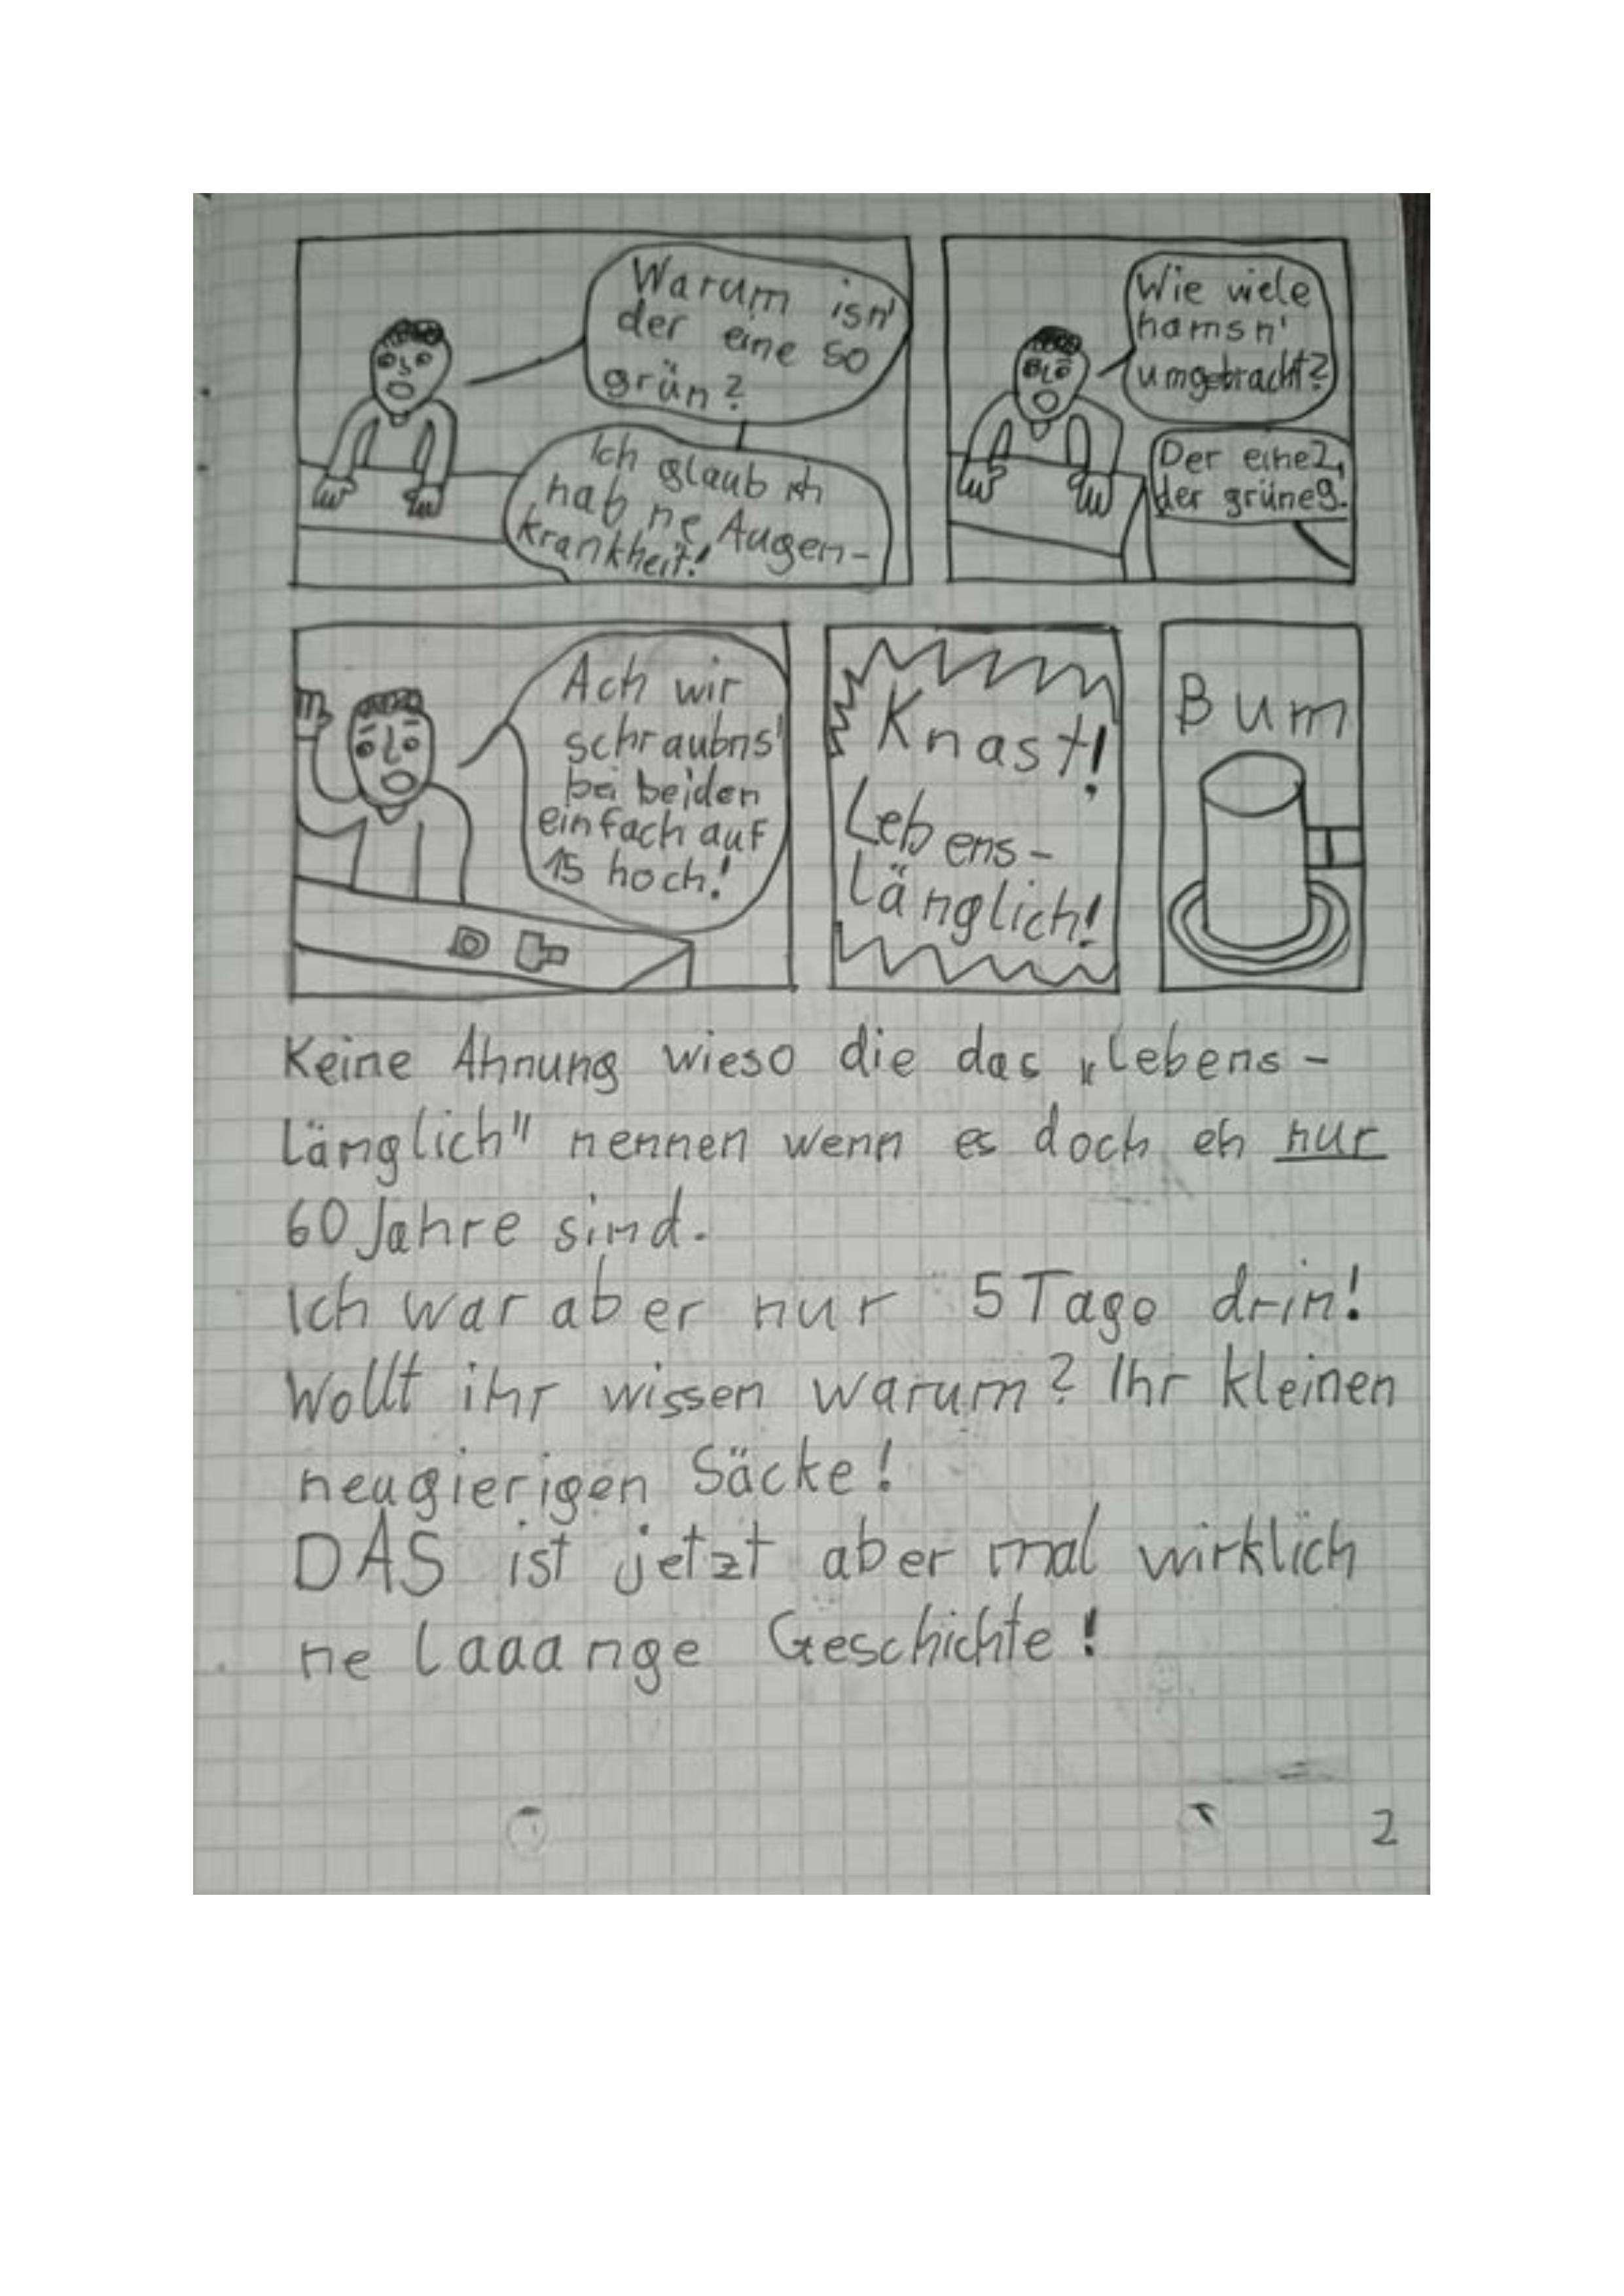 Warum isn'
der eine so
grün?
Ich glaub ich
hab ne Augen-
krankheit!
Wie viele
hamsn'
umgebracht?
Der eine 2,
der grüne 9.
Ach wir
schraubns'
bei beiden
einfach auf
15 hoch!
Knast!
Lebens-
länglich!
Bum
Keine Ahnung wieso die das „lebens-
länglich" nennen wenn es doch eh nur
60 Jahre sind.
Ich war aber nur 5 Tage drin!
Wollt ihr wissen warum? Ihr kleinen
neugierigen Säcke!
DAS ist jetzt aber mal wirklich
ne laaange Geschichte!
2